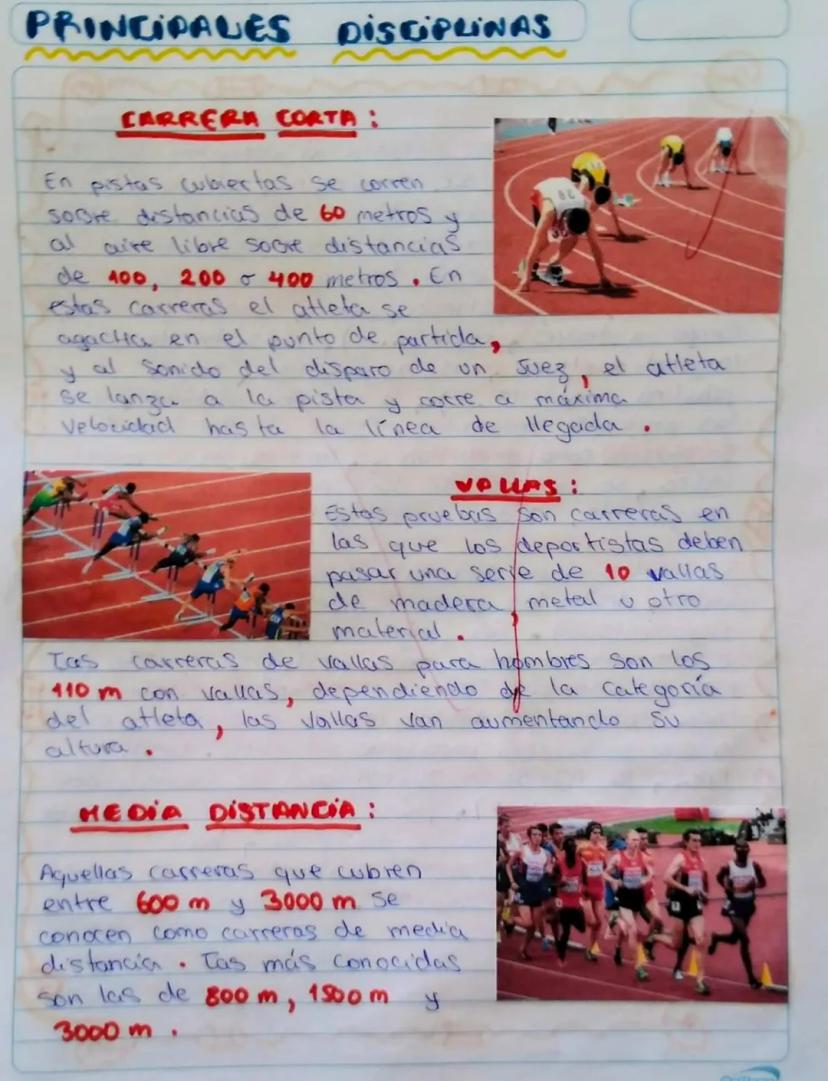 PRINCIPALES DISCIPLINAS
CARRERA CORTA:
En pistas cubiertas se corren
sobre distancias de 60 metros y
al aire libre sobre distancias
de 100, 200 o 400 metros. En
estas carreras el atleta se
agacha en el punto de partida,
y al sonido del disparo de un Juez, el atleta
se lanza a la pista y corre a máxima
velocidad hasta la línea de llegada.
VALLAS:
Estas pruebas son carreras en
las que los deportistas deben
pasar una serie de 10 vallas
de madera, metal u otro
material.
Las carreras de vallas para hombres son los
110 m con vallas, dependiendo de la categoría
del atleta, las vallas van aumentando su
altura.
MEDIA DISTANCIA:
Aquellas carreras que cubren
entre 600 m y 3000 m se
conocen como carreras de media
distancia. Las más conocidas
son las de 800 m, 1500 m y
3000 m.